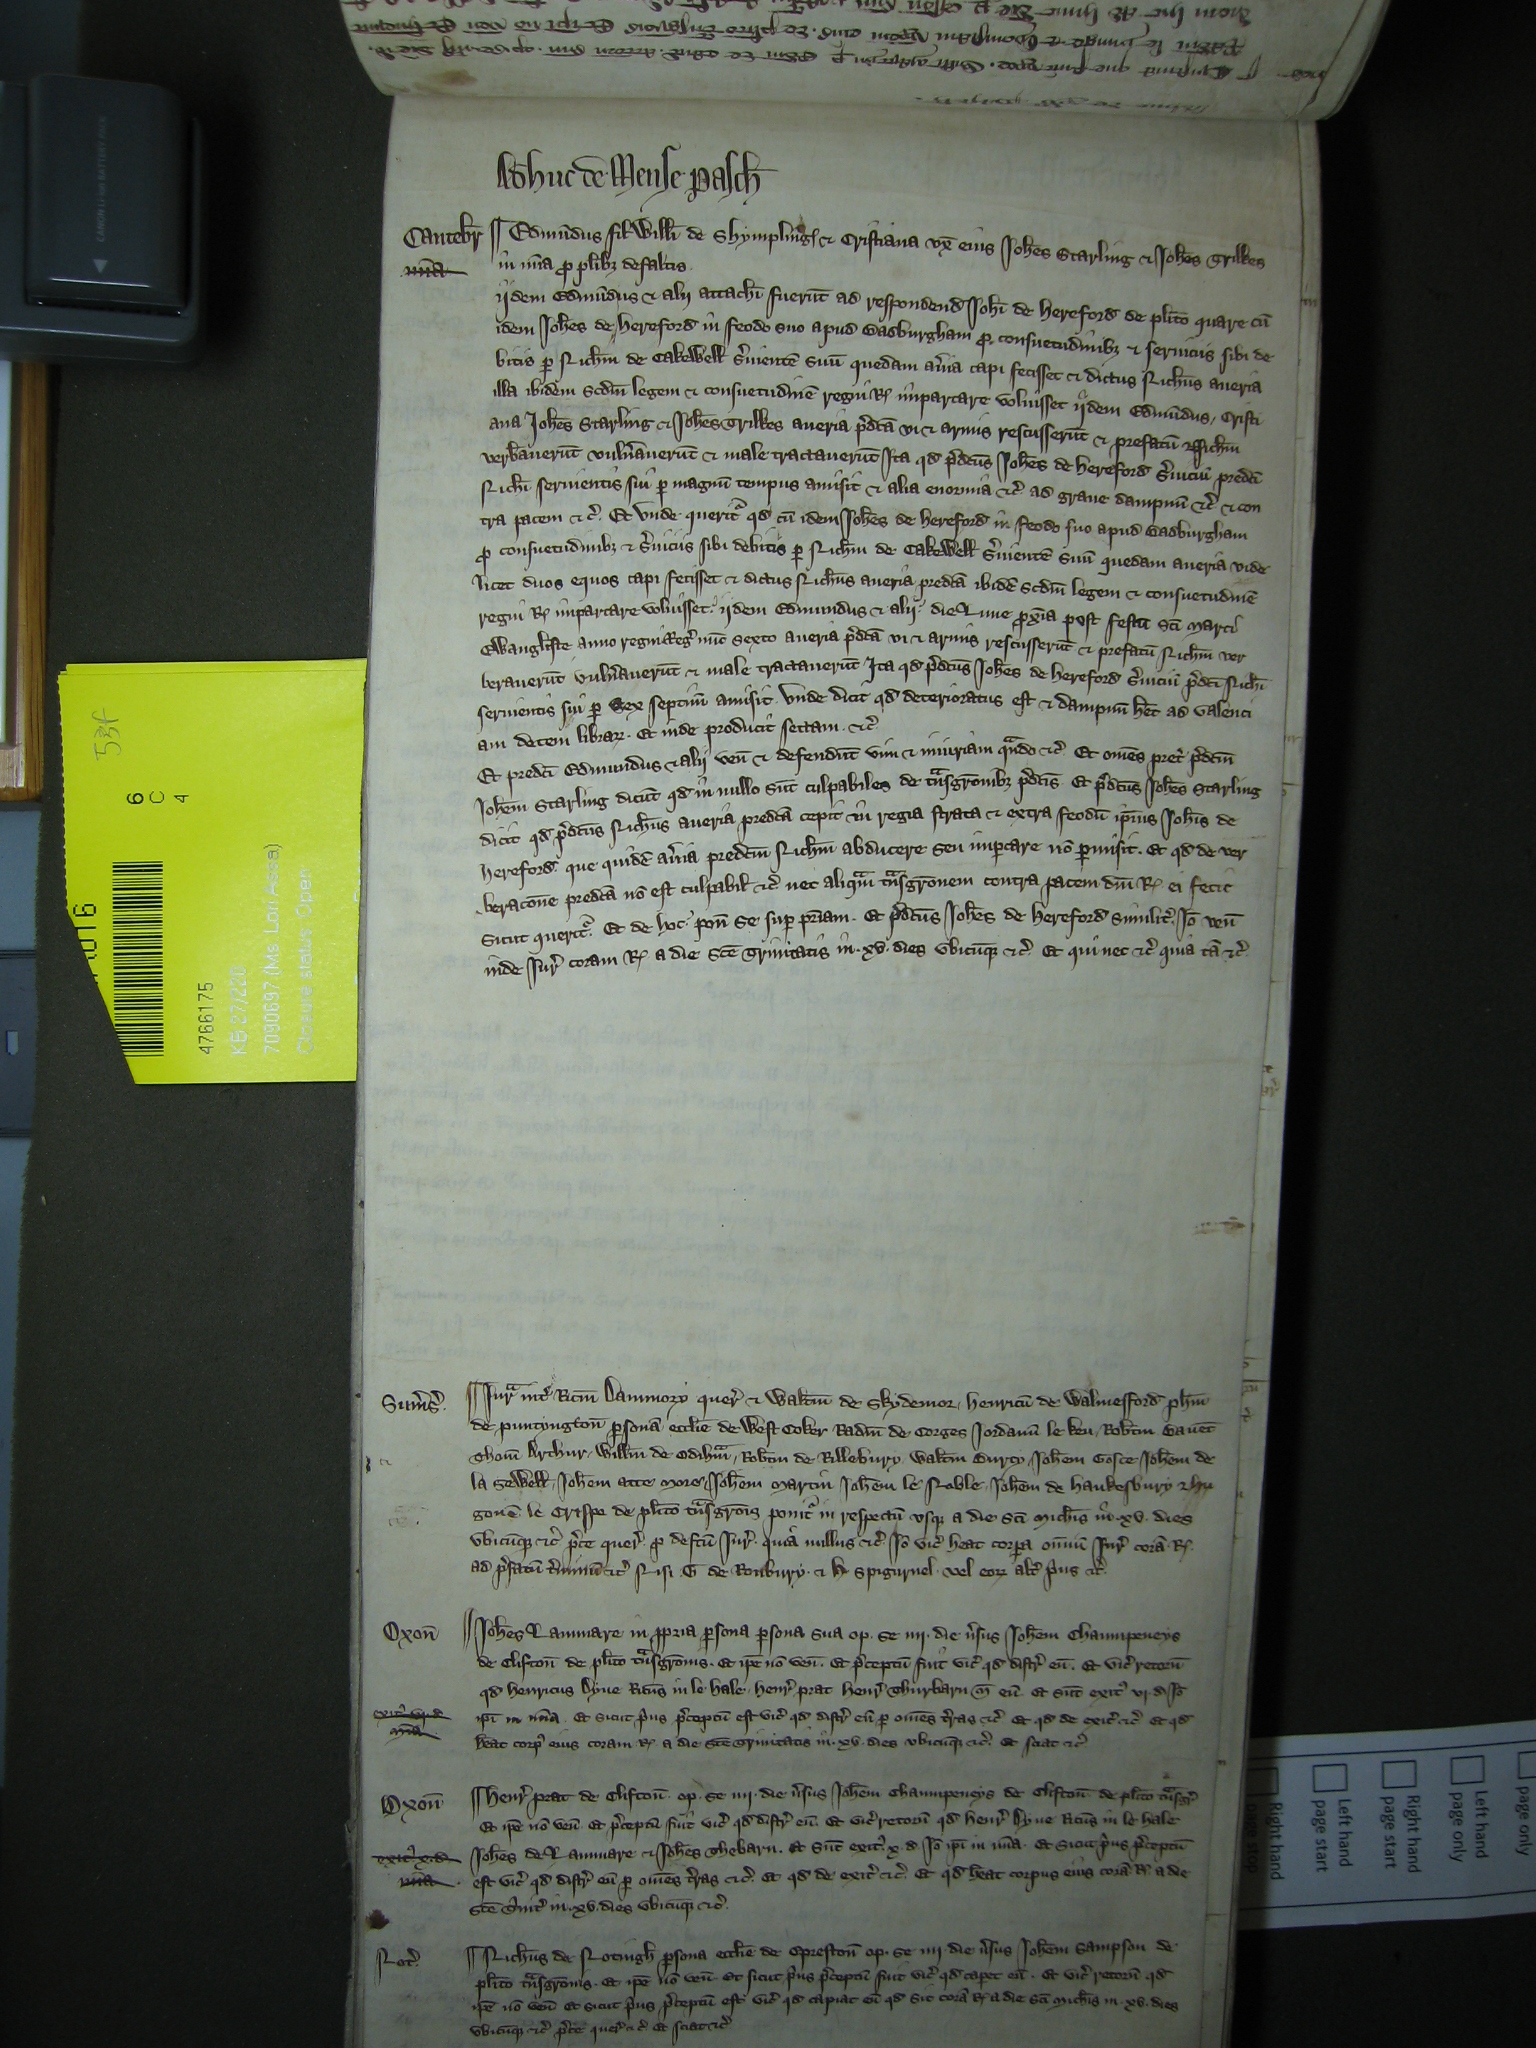 Adhuc de Mense Pasch
Cantebr Edmundus fil Willi de Shympling & Cristiana ux eius Johes Starling & Johes Trilkes
mia in mia p plibz defaltis
ijdem Edmundus & alij attachi fuerut ad respondend Johi de Hereford de plito quare cu
idem Johes de Hereford in feodo suo apud Badburgham p consuetudinibz & seruiciis sibi de
bitis p Nichm de Cakewell s'uiente suu quedam au'ia capi fecisset & dictus Nichus aueria
illa ibidem scdm legem & consuetudine regni R imparcare voluisset ijdem Edmundus, Cristi
ana Johes Starling & Johes Trilkes aueria p'dca vi & armis rescusserut & prefatu Nichm
verb'auerut vuln'auerut & male tractauerut Ita qd p'dcus Johes de Hereford s'uiciu predci
Nichi seruientis sui p magnu tempus amisit & alia enormia &c ad graue dampnu &c & con
tra pacem &c. Et vnde querit' qd cu idem Johes de Hereford in feodo suo apud Badburgham
p consuetudinibz & s'uiciis sibi debitis p Nichm de Cakewell s'uiente suu quedam aueria vide
licet duos equos capi fecisset & dictus Nichus aueria predca ibide scdm legem & consuetudine
regni R imparcare voluisset ijdem Edmundus & alij die Lune pxia post festu sci Marci
Ewangliste anno regni Reg nuc sexto aueria p'dca vi & armis rescusserut & prefatu Nichm ver
berauerut vuln'auerut & male tractauerut Ita qd p'dcus Johes de Hereford s'uiciu p'dci Nichi
seruientis sui p sex septim amisit. vnde dicit qd deterioratus est & dampnu het ad valenci
am decem librar. Et inde producit sectam &c
Et predci Edmundus & alij ven & defendut vim & iniuriam qndo &c. Et omes pret' p'dcm
Johem Starling dicut qd in nullo sut culpabiles de tnsgronibz p'dcis. Et p'dcus Johes Starling
dicit qd p'dcus Nichus aueria predca cepit in regia strata & extra feodu ipius Johis de
Hereford. que quide au'ia predcm Nichm abducere seu imparcare no pmisit. Et qd de ver
beracone predca no est culpabil &c nec aliqam tnsgronem contra pacem dni R ei fecit
sicut querit'. Et de hoc pon se sup priam. Et p'dcus Johes de Hereford similit'. Jo ven
inde Jur' coram R a die Sce Trinitatis in xv. dies vbicuq &c. Et qui nec &c quia ta &c.
Sum's' Jur'a int' Ricm Dammory quer' & Waltm de Skydemor, Henricu de Walmesford phm
de Puntyngton psona ecclie de West Coker Radm de Gorges Jordanu le Keu, Robtm Dauet
Thom Arthur, Willm de Odihm, Robtm de Billebury, Waltm Durty, Johem Goste Johem de
la Sewell, Johem atte More, Johem Martin Johem le Noble, Johem de Haukesbury & Hu
gone le Crispe de plito tnsgronis ponit' in respectu vsq a die sci Michis in xv. dies
vbicuq &c p'ce quer'. p defcu Jur'. quia nullus &c. Jo vic' heat corpa omniu Jur' cora R
ad p'fatu t'minu &c Nisi G de Roubury & H Spigurnel vel eor alt' p'us &c.
Oxon Johes Lammare in ppria psona psona sua op. se iiij. die v'sus Johem Chaumpeneys
de Clifton de plito tnsgronis. Et ipe no ven. Et p'ceptu fuit vic' qd distr' eu. Et vic' retorn
qd Henricus Dyne Ricus in le Hale, Henr' Prat Henr' Thurbarn m eu. Et sut exit' vj. d Jo
exit' vj. d ipi in mia. Et sicut p'us p'ceptu est vic' qd distr' eu p omes t'ras &c Et qd de exit' &c Et qd
mia heat corp' eius coram R a die Sce Trinitatis in xv. dies vbicuq &c. Et sciat &c
Oxon Henr' Prat de Clifton op. se iiij. die v'sus Johem Chaumpeneys de Clifton de plito tnsgr'
Et ipe no ven. Et p'ceptu fuit vic' qd distr' eu. Et vic' retorn qd Henr' Dyne Ricus in le Hale
exit' x. d Johes de Lammare & Johes Thebarn. Et sut exit' x. d Jo ipi in mia. Et sicut p'us p'ceptu
mia est vic' qd distr' eu p omes t'ras &c. Et qd de exit' &c. Et qd heat corpus eius cora R a die
Sce Trinit' in xv. dies vbicuq &c.
Not' Nichus de Notingh psona ecclie de Opreston op. se iiij die v'sus Johem Sampson de
plito tnsgronis. Et ipe no ven. Et sicut p'us p'ceptu fuit vic' qd capet eu. Et vic' retorn qd
ipe no ven Et sicut p'us p'ceptu est vic' qd capiat eu qd sit cora R a die sci Michis in xv. dies
vbicuq &c p'ce quer' &c Et sciat &c
53f
6
C
4
4766175
KB 27/220
7090697 (Ms Lori Assa)
Closure status Open
CANON LI-ION BATTERY PACK
Right hand
page stop
Left hand
page start
Right hand
page start
Left hand
page only
page only